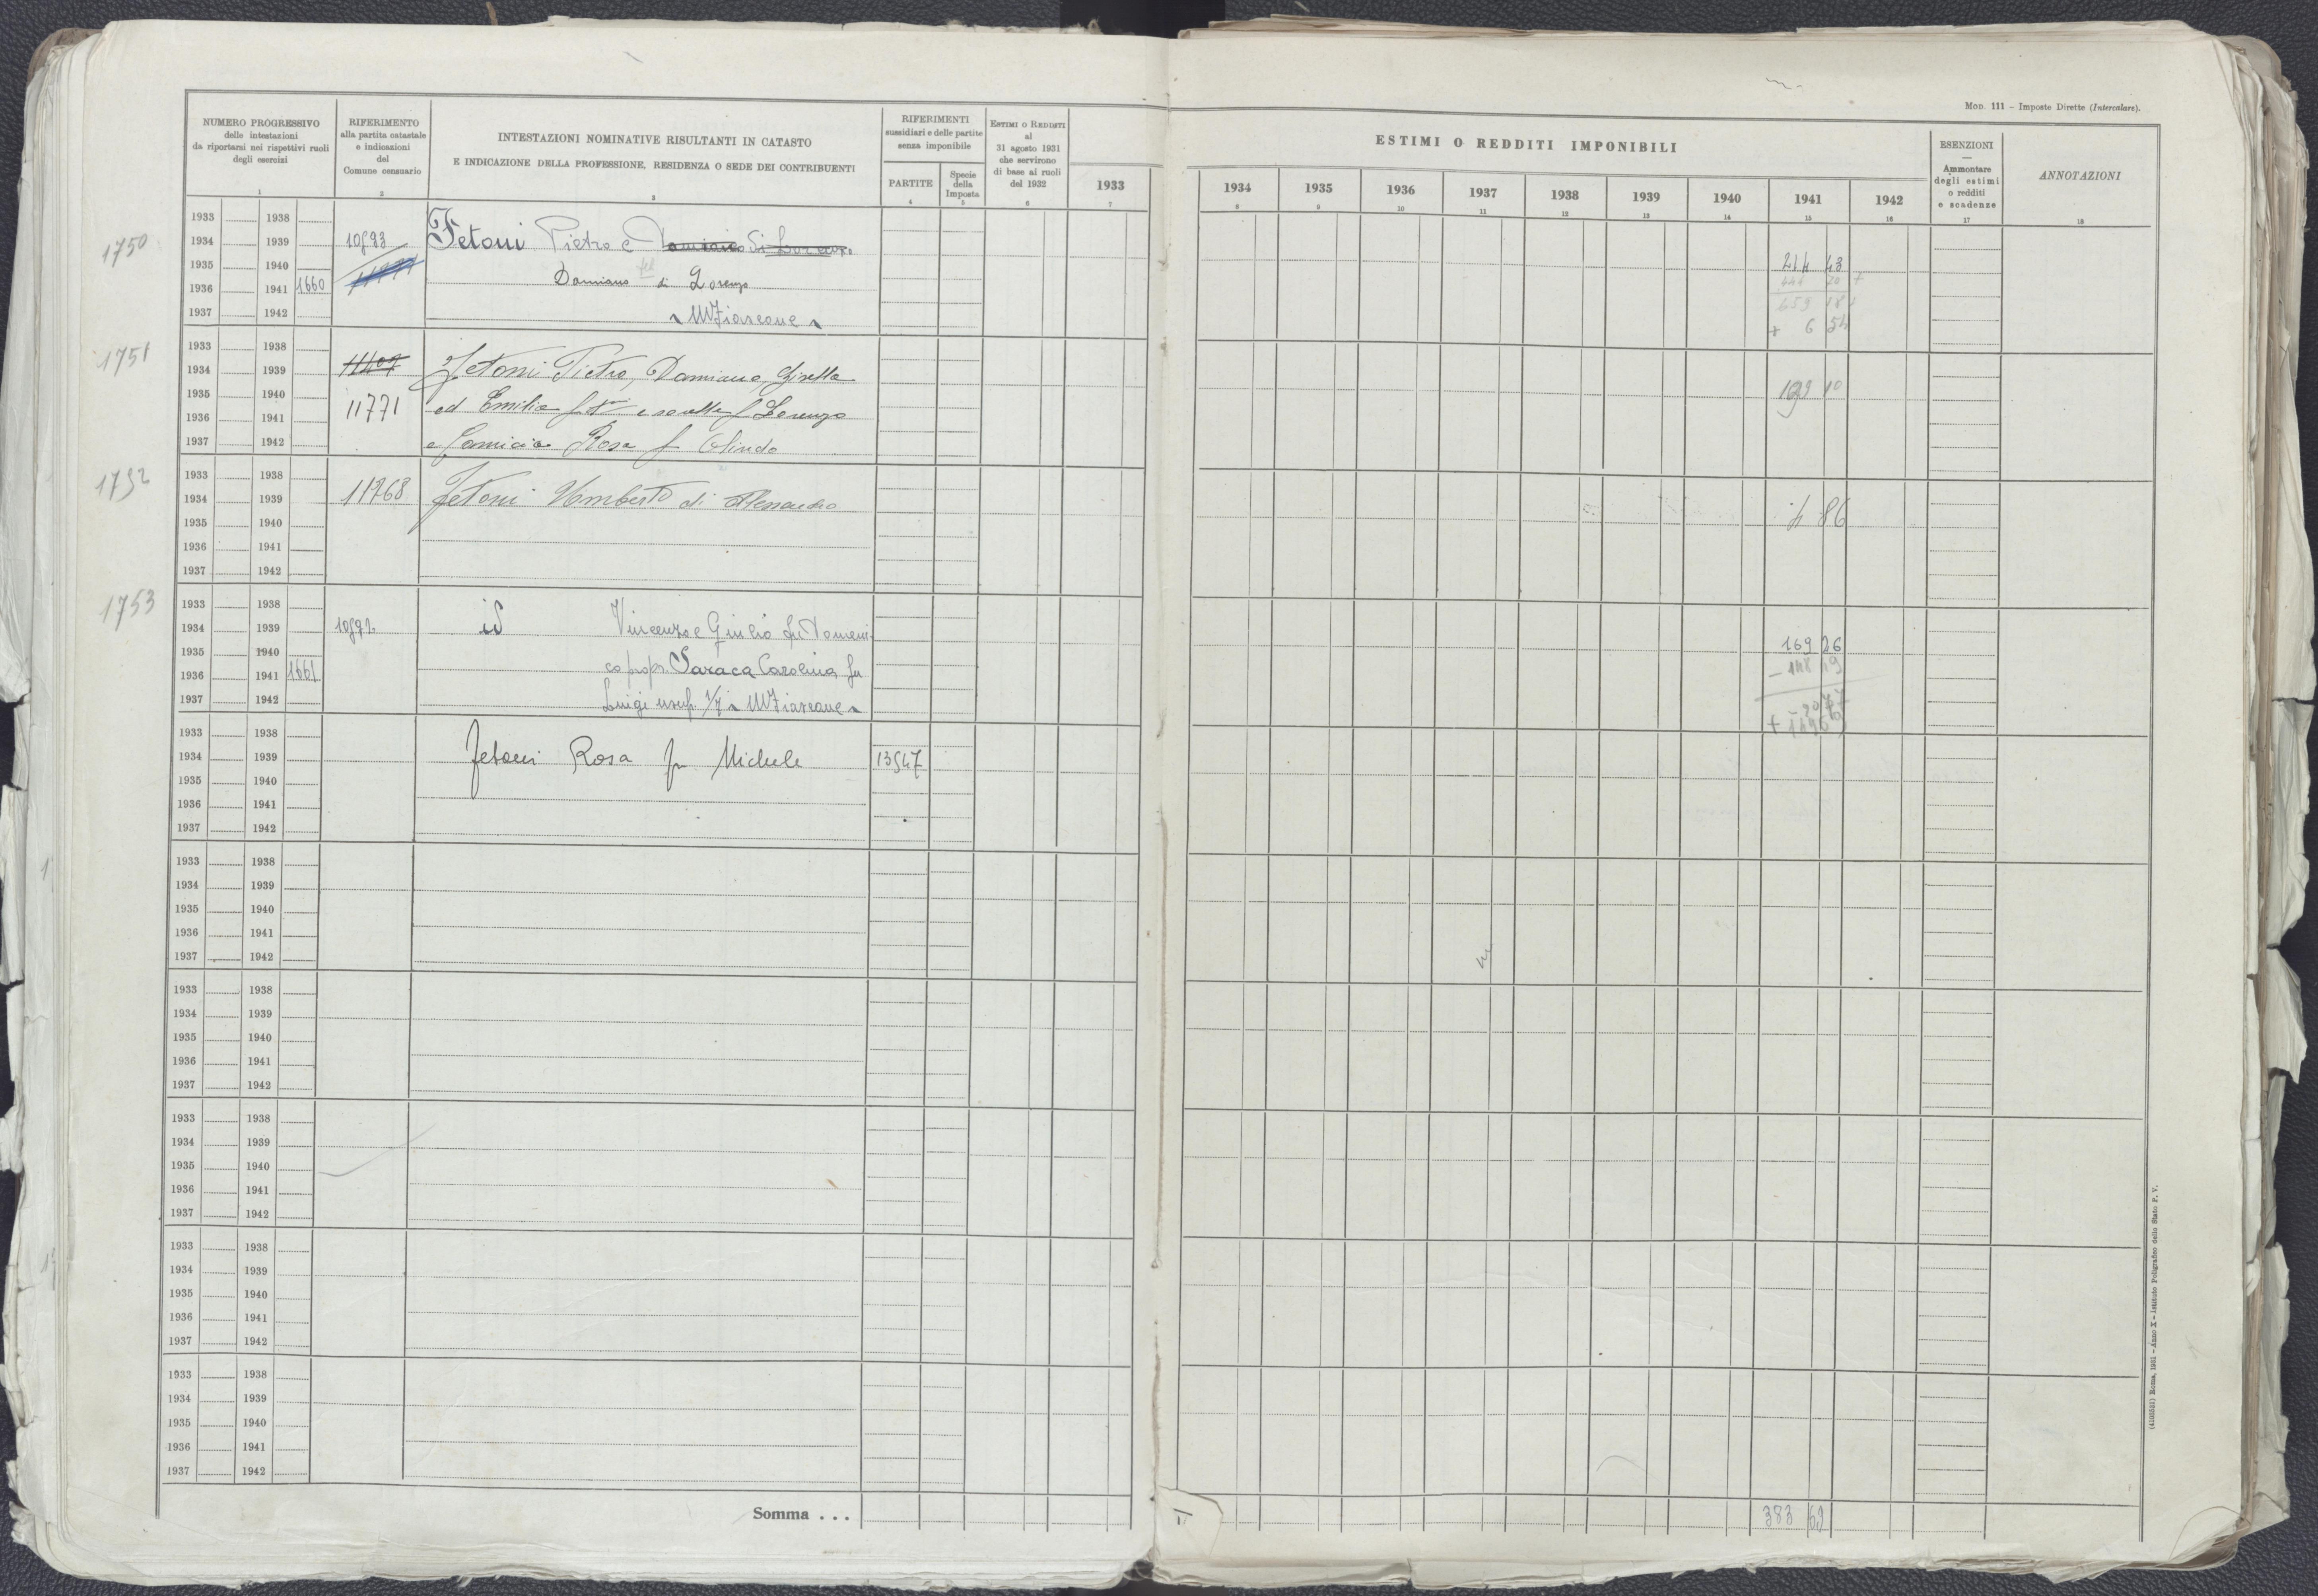 MOD. 111 - Imposte Dirette (Intercalare).
NUMERO PROGRESSIVO
delle intestazioni
da riportarsi nei rispettivi ruoli
degli esercizi
1
RIFERIMENTO
alla partita catastale
e indicazioni
del
Comune censuario
2
INTESTAZIONI NOMINATIVE RISULTANTI IN CATASTO
E INDICAZIONE DELLA PROFESSIONE, RESIDENZA O SEDE DEI CONTRIBUENTI
3
RIFERIMENTI
sussidiari e delle partite
senza imponibile
PARTITE
4
Specie
della
Imposta
5
ESTIMI O REDDITI
al
31 agosto 1931
che servirono
di base ai ruoli
del 1932
6
ESTIMI O REDDITI IMPONIBILI
1933 1934 1935 1936 1937 1938 1939 1940 1941 1942
7 8 9 10 11 12 13 14 15 16
ESENZIONI
—
Ammontare
degli estimi
o redditi
e scadenze
17
ANNOTAZIONI
18
1750
1933 1938
1934 1939 10593 Fetoni Pietro e Domenico di Lorenzo
1935 1940 214 43
1936 1941 1660 Damiano di Lorenzo
1937 1942
653
+ 6 54
1751
1933 1938
1934 1939 11407 Fetoni Pietro, Damiano, Gisella
1935 1940 10
1936 1941 11771 ed Emilia e sorelle f Lorenzo
1937 1942 e Camicia Rosa f Olindo
1752
1933 1938
1934 1939 11768 Fetoni Umberto di Alessandro
1935 1940 4 86
1936 1941
1937 1942
1753
1933 1938
1934 1939 10592 id Vincenzo e Giulio fu Domeni-
1935 1940 169 26
1936 1941 1661 co propr. Saraca Carolina fu
- 148 19
1937 1942 Luigi usuf. 1/7
1933 1938
1934 1939 Fetoni Rosa fu Michele 13547
1935 1940
1936 1941
1937 1942
1933 1938
1934 1939
1935 1940
1936 1941
1937 1942
1933 1938
1934 1939
1935 1940
1936 1941
1937 1942
1933 1938
1934 1939
1935 1940
1936 1941
1937 1942
1933 1938
1934 1939
1935 1940
1936 1941
1937 1942
1933 1938
1934 1939
1935 1940
1936 1941
1937 1942
Somma . . . 383 69
(4103521) Roma, 1931 - Anno X - Istituto Poligrafico dello Stato P. V.